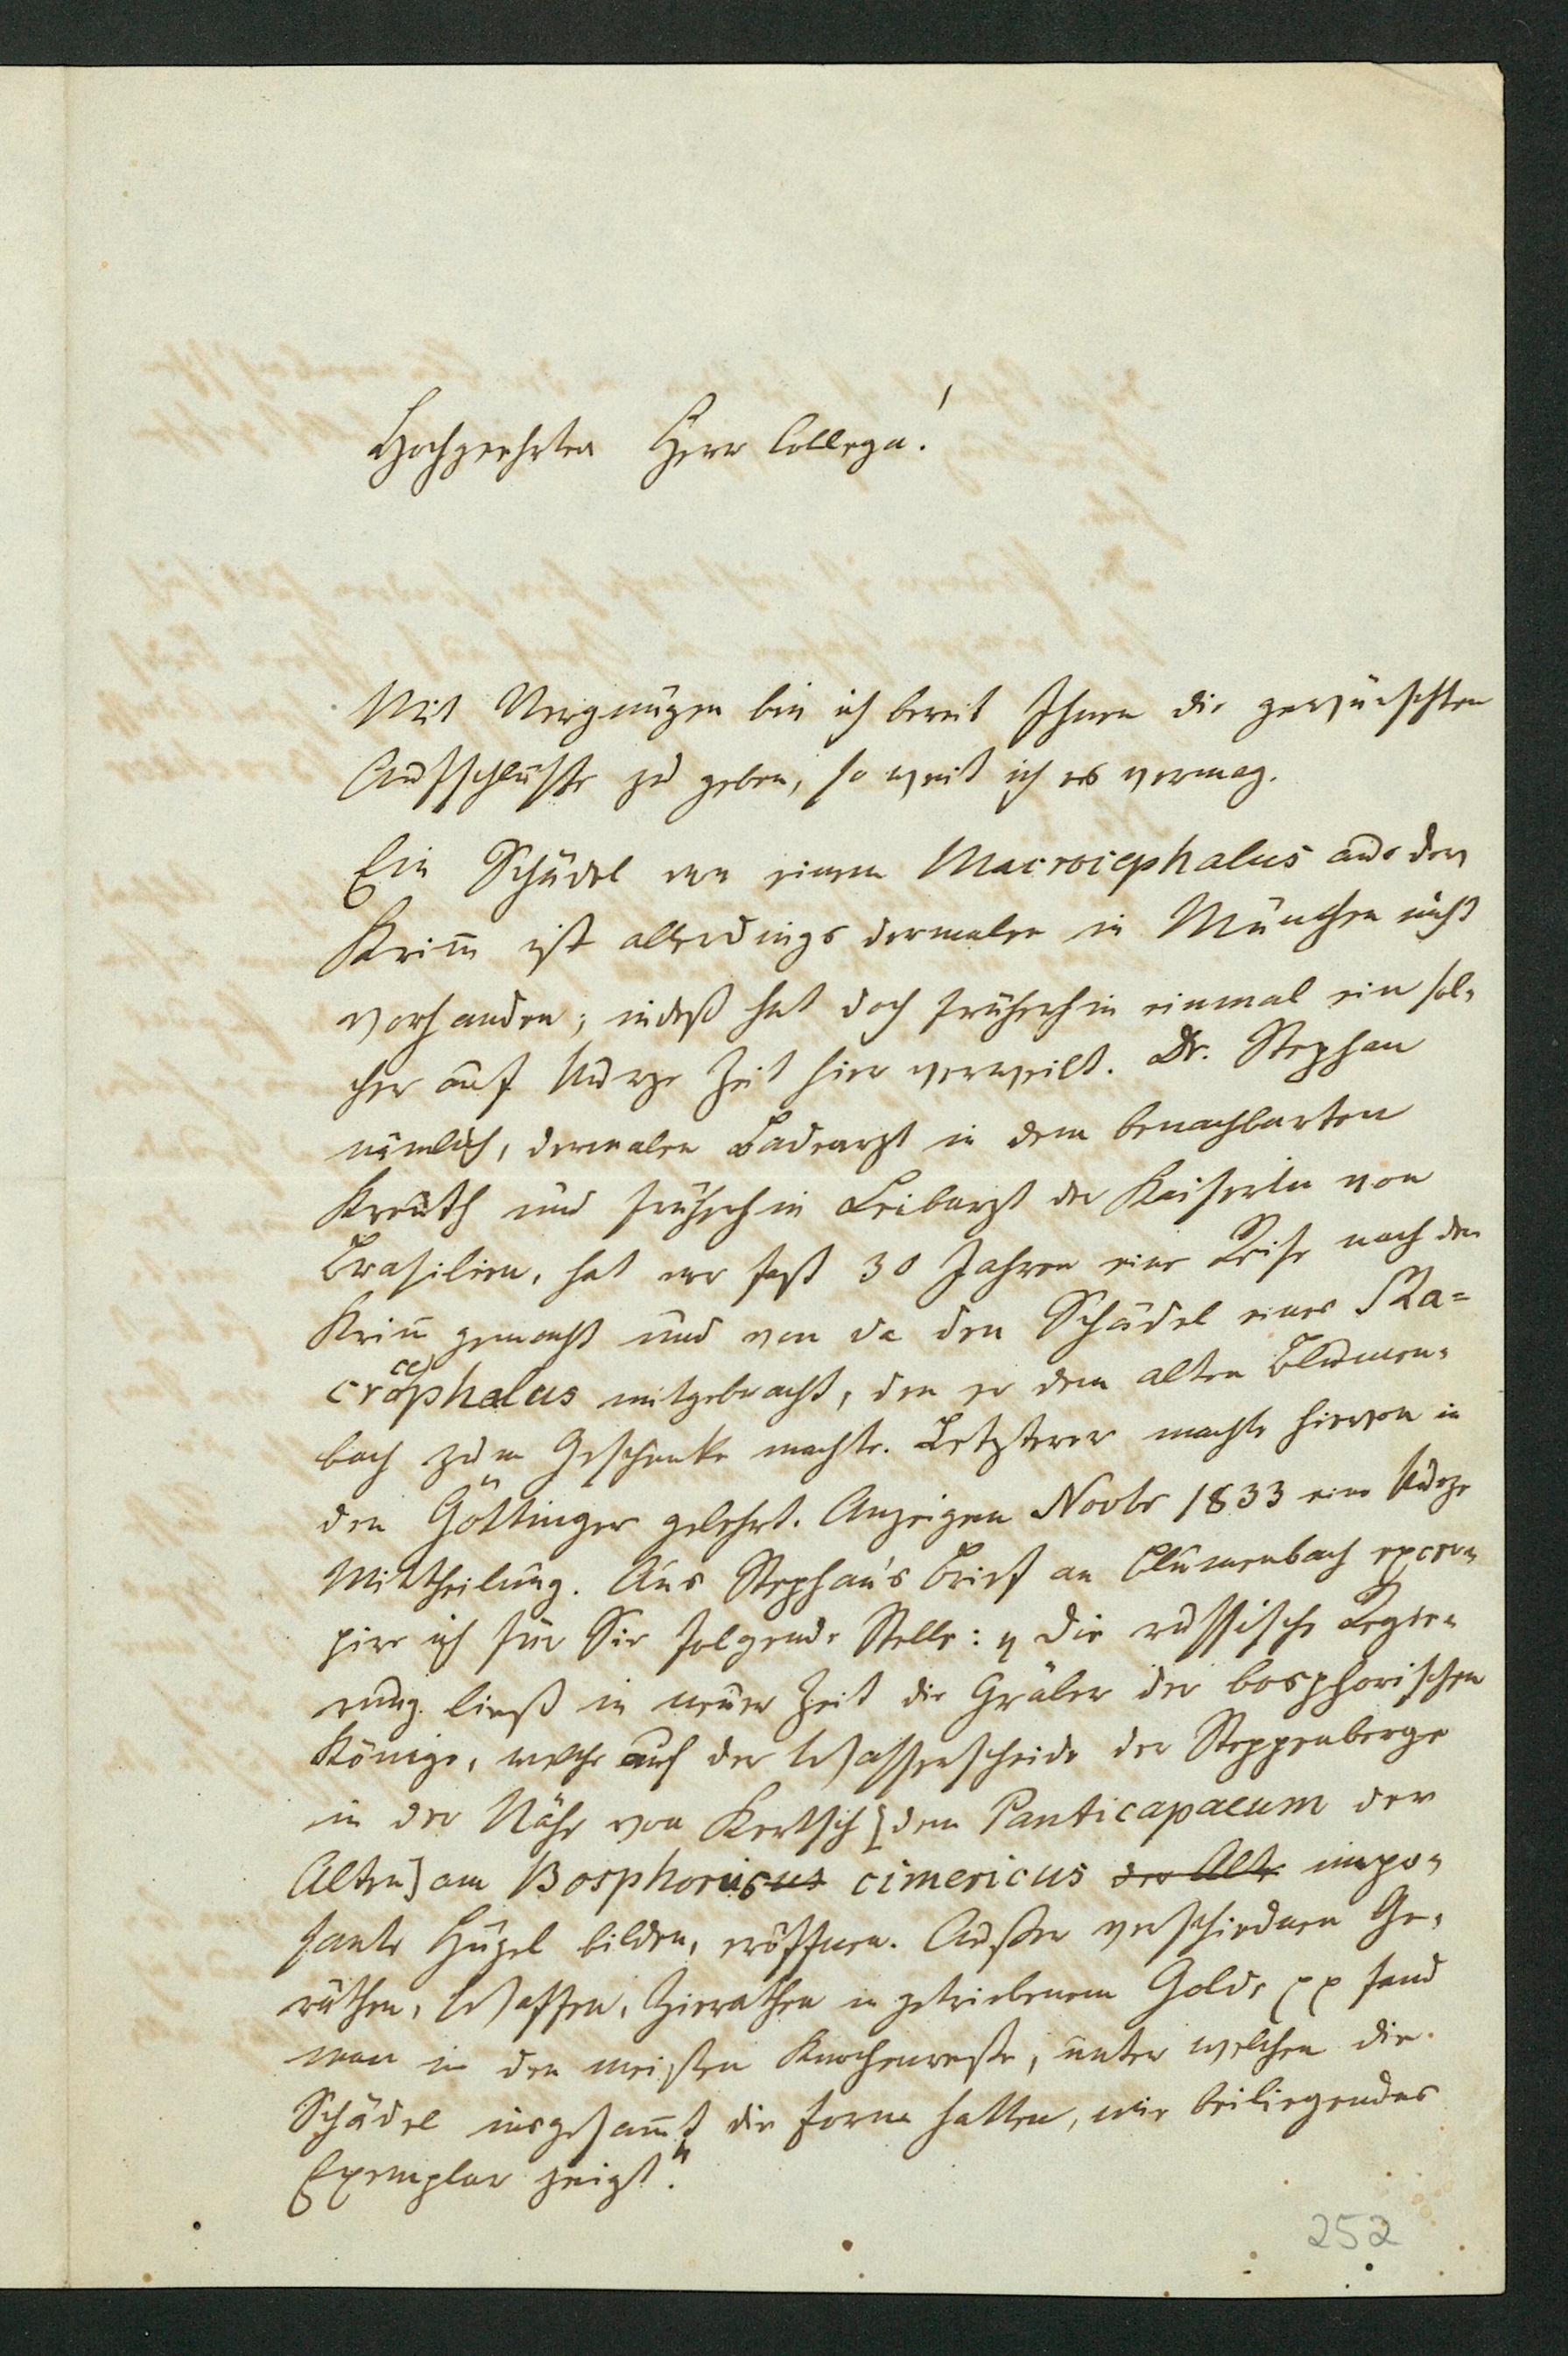 Hochgeehrter Herr Collega!
Mit Vergnügen bin ich bereit Ihnen die gewünschten
Aufschlüsse zu geben, so weit ich es vermag.
Ein Schädel von einem Macrocephalus aus der
Krim̅ ist allerdings dermalen in München nicht
vorhanden; indeß hat doch früherhin einmal ein sol-
cher auf kurze Zeit hier verweilt. Dr. Stephan
nämlich, dermalen Badearzt in dem benachbarten
Kreuth und früherhin Leibarzt der Kaiserin von
Brasilien, hat vor fast 30 Jahren eine Reise nach der
Krim̅ gemacht und von da den Schädel eines Ma=
crocephalus mitgebracht, den er dem alten Blumen-
bach zum Geschenke machte. Letzterer machte hievon in
den Göttinger gelehrt. Anzeigen Novbr 1833 eine kurze
Mittheilung. Aus Stephan's Brief an Blumenbach excer-
pire ich für Sie folgende Stelle: „Die russische Regie-
rung ließ in neuer Zeit die Gräber der bosphorischen
Könige, welche auf der Wasserscheide der Steppenberge
in der Nähe von Kertsch [dem Panticapaeum der
Alten] am Bosphorus cimericus der Alte impo-
sante Hügel bilden, eröffnen. Außer verschiednen Ge-
räthen, Waffen, Zierathen in getriebenem Golde pp fand
man in den meisten Knochenreste, unter welchen die
Schädel insgesam̅t die Form hatten, wie beiliegendes
Exemplar zeigt."
252